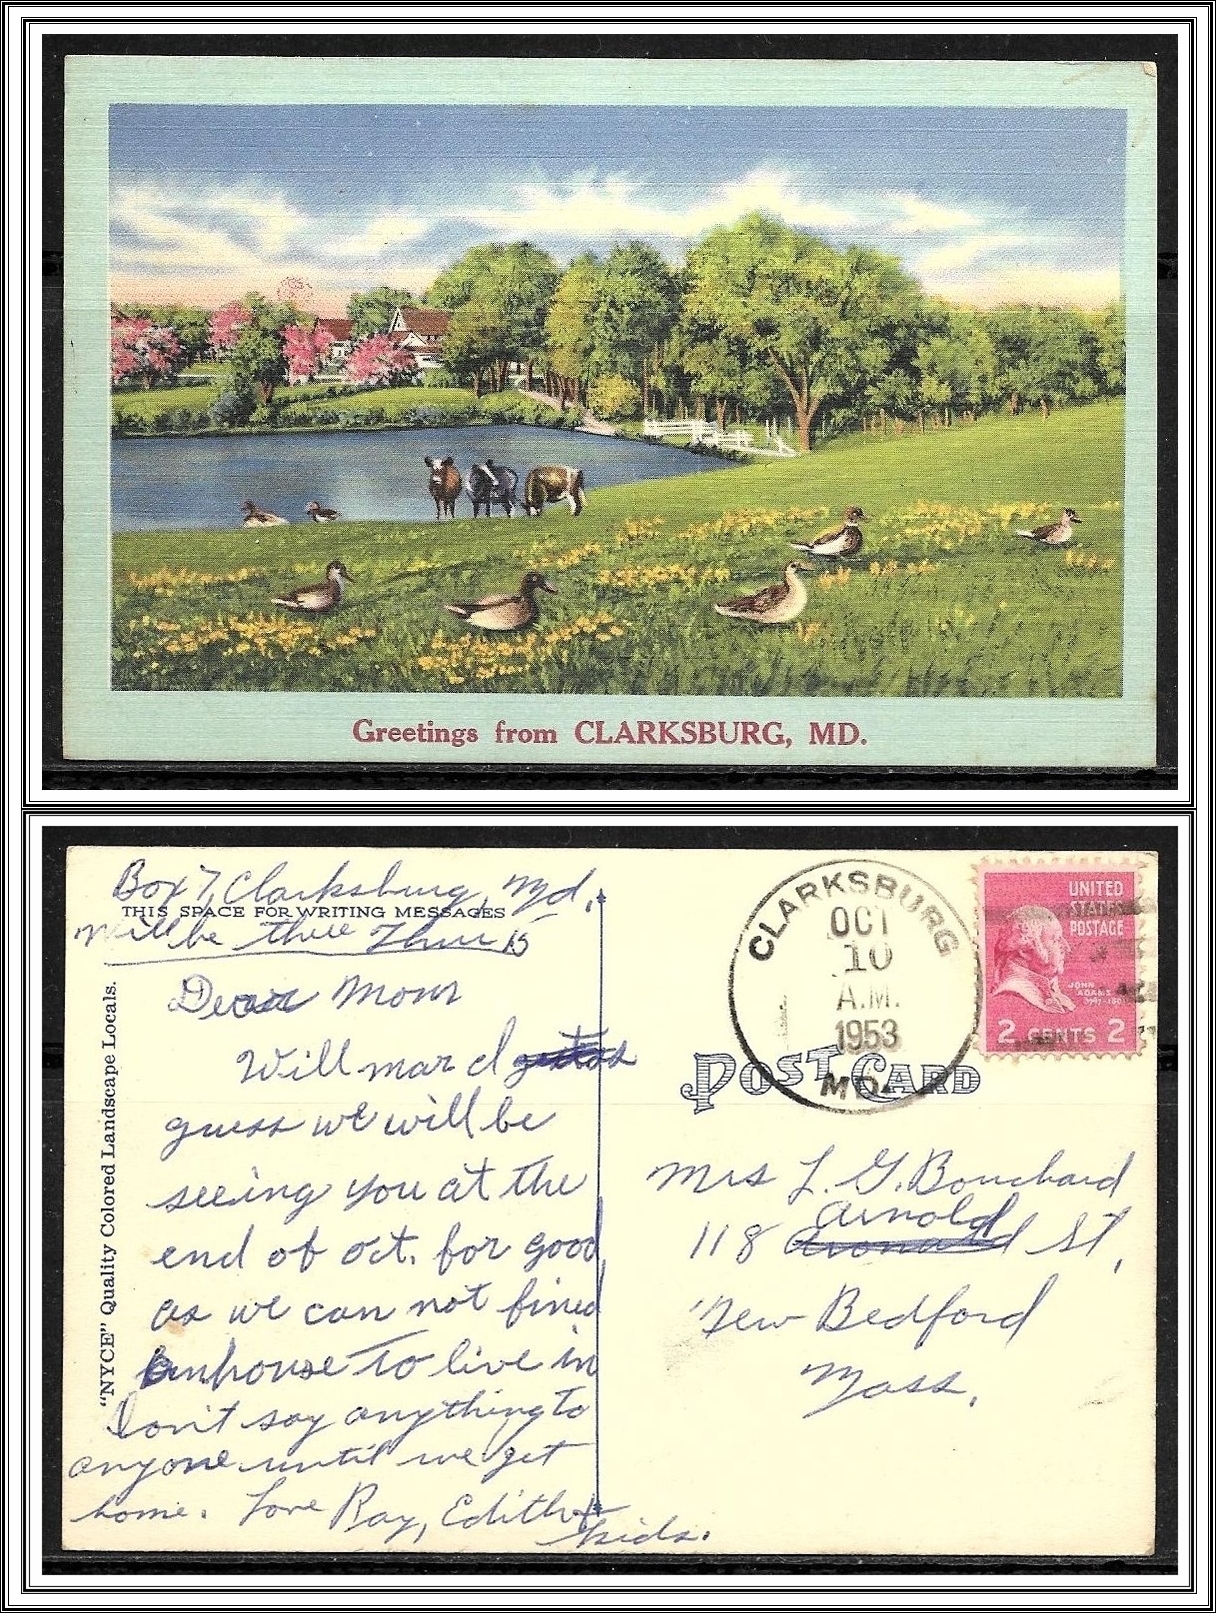 Greetings from CLARKSBURG, MD.
Box 7 Clarksburg, Md,
THIS SPACE FOR WRITING MESSAGES
Will be there Thur 15
Dear Mom
Will mard
guess we will be
seeing you at the
end of Oct. for good
as we can not fined
an house to live in
Don't say anything to
anyone until we get
home. Love Ray, Edith &
kids.
"NYCE" Quality Colored Landscape Locals.
CLARKSBURG
OCT
10
A.M.
1953
MD.
UNITED
STATES
POSTAGE
JOHN
ADAMS
2 CENTS 2
POST CARD
Mrs L. G. Bouchard
118 Arnold St,
New Bedford
Mass.